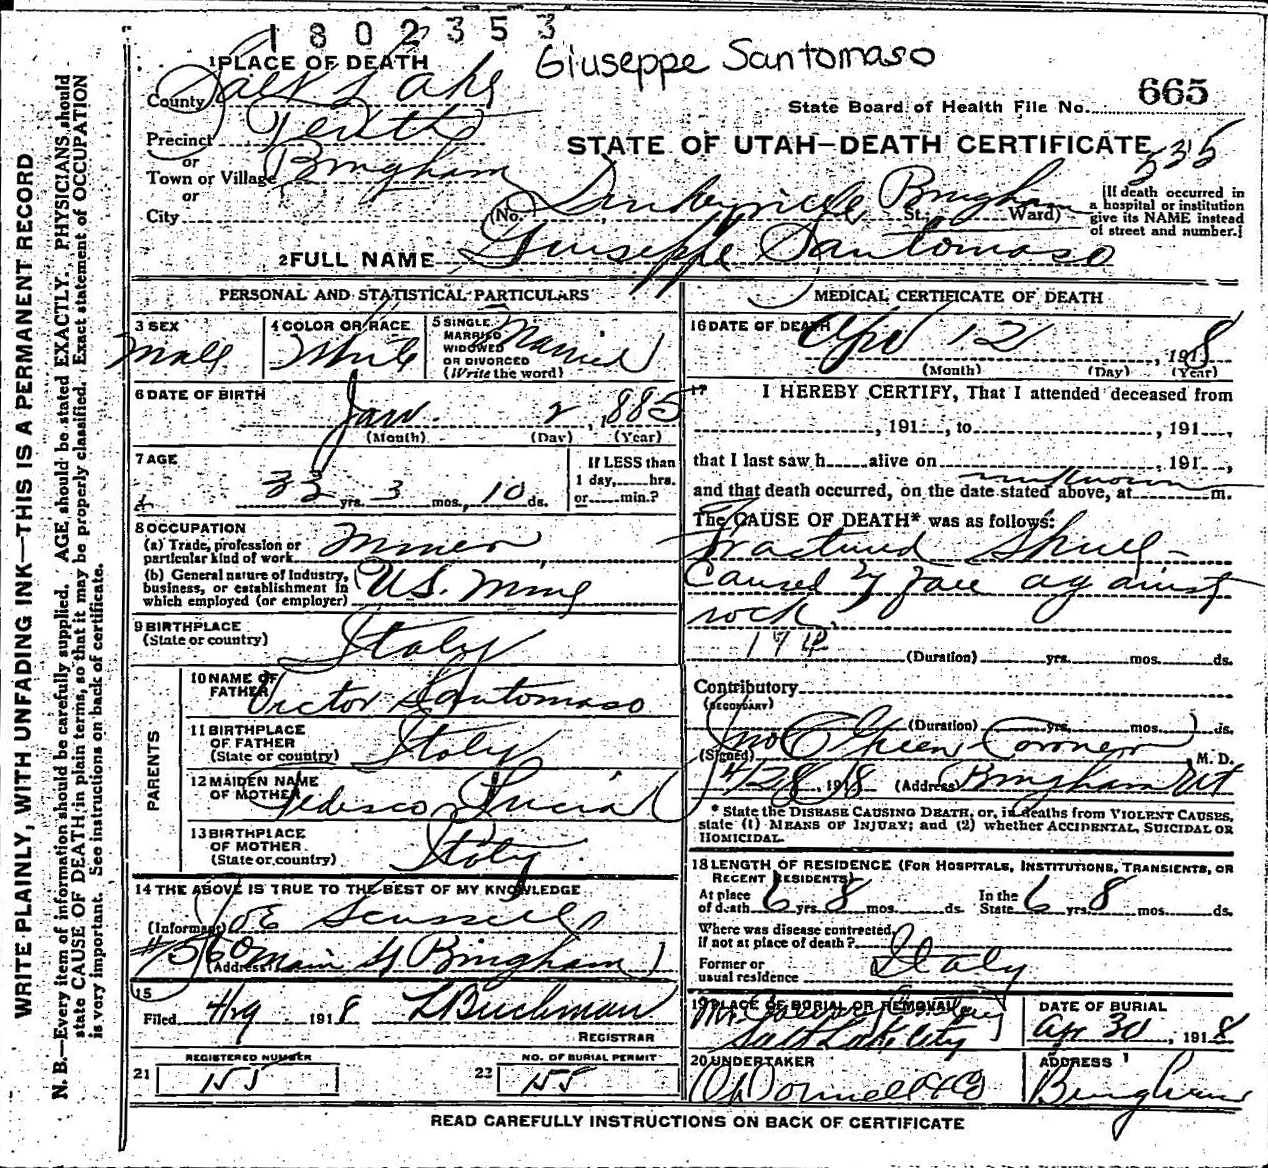 1802353
Giuseppe Santomaso
1 PLACE OF DEATH
County Salt Lake
State Board of Health File No. 665
Precinct
STATE OF UTAH—DEATH CERTIFICATE
535
or
Town or Village Bingham
or
City
(No. St., Bingham Ward)
[If death occurred in
a hospital or institution
give its NAME instead
of street and number.]
2 FULL NAME Giuseppe Santomaso
PERSONAL AND STATISTICAL PARTICULARS
3 SEX
Male
4 COLOR OR RACE
White
5 SINGLE
MARRIED
WIDOWED
OR DIVORCED
(Write the word)
Married
6 DATE OF BIRTH
Jan. 2, 1885
(Month) (Day) (Year)
7 AGE
33 yrs. 3 mos. 10 ds.
If LESS than
1 day, hrs.
or min.?
8 OCCUPATION
(a) Trade, profession or
particular kind of work Miner
(b) General nature of Industry,
business, or establishment in
which employed (or employer) U.S. Mine
9 BIRTHPLACE
(State or country) Italy
PARENTS
10 NAME OF
FATHER Victor Santomaso
11 BIRTHPLACE
OF FATHER
(State or country) Italy
12 MAIDEN NAME
OF MOTHER Tedesco Lucia
13 BIRTHPLACE
OF MOTHER
(State or country) Italy
14 THE ABOVE IS TRUE TO THE BEST OF MY KNOWLEDGE
(Informant) Joe
(Address) #560 Main St Bingham
15
Filed 4/29 1918 L Buchman
REGISTRAR
REGISTERED NUMBER
21 155
NO. OF BURIAL PERMIT
22 155
MEDICAL CERTIFICATE OF DEATH
16 DATE OF DEATH
Apr 12, 1918
(Month) (Day) (Year)
17 I HEREBY CERTIFY, That I attended deceased from
, 191 , to , 191 ,
that I last saw h alive on , 191 ,
and that death occurred, on the date stated above, at unknown m.
The CAUSE OF DEATH* was as follows:
Fractured Skull
Caused by fall against
rock.
(Duration) yrs. mos. ds.
Contributory
(SECONDARY)
(Duration) yrs. mos. ds.
(Signed) Jno C Green Coroner M. D.
4/28, 1918 (Address) Bingham Ut
* State the DISEASE CAUSING DEATH, or, in deaths from VIOLENT CAUSES,
state (1) MEANS OF INJURY; and (2) whether ACCIDENTAL, SUICIDAL OR
HOMICIDAL.
18 LENGTH OF RESIDENCE (FOR HOSPITALS, INSTITUTIONS, TRANSIENTS, OR
RECENT RESIDENTS)
At place
of death 6 yrs. 8 mos. ds.
In the
State 6 yrs. 8 mos. ds.
Where was disease contracted,
if not at place of death?
Former or
usual residence Italy
19 PLACE OF BURIAL OR REMOVAL
Salt Lake City
DATE OF BURIAL
Apr 30, 1918
20 UNDERTAKER
O'Donnell & Co
ADDRESS
Bingham
READ CAREFULLY INSTRUCTIONS ON BACK OF CERTIFICATE
WRITE PLAINLY, WITH UNFADING INK—THIS IS A PERMANENT RECORD
N. B.—Every item of information should be carefully supplied. AGE should be stated EXACTLY. PHYSICIANS should
state CAUSE OF DEATH in plain terms, so that it may be properly classified. Exact statement of OCCUPATION
is very important. See instructions on back of certificate.